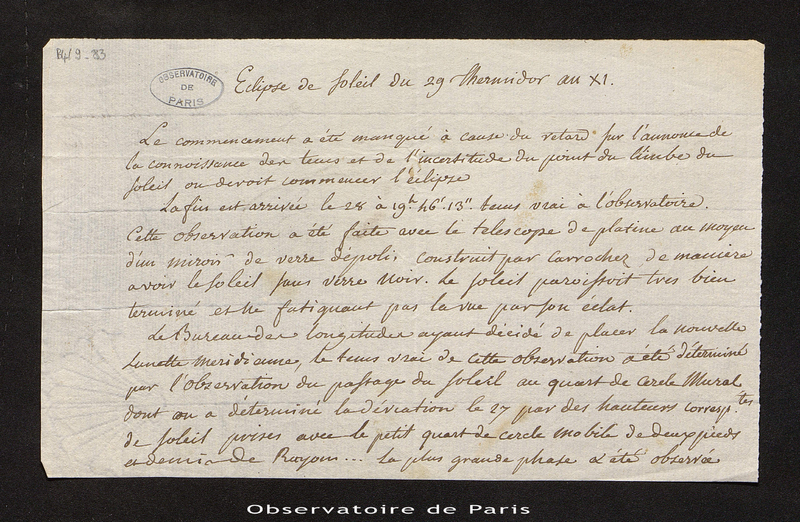 R4/9-83
OBSERVATOIRE
DE
PARIS
Eclipse de Soleil du 29 Thermidor an XI.
Le commencement a été manqué à cause du retard sur l'annonce de
la connoissance des tems et de l'incertitude du point du limbe du
Soleil ou devoit commencer l'éclipse
La fin est arrivée le 28 à 19h 46' 13" tems vrai à l'observatoire.
Cette observation a été faite avec le telescope de platine au moyen
d'un miroir de verre dépoli construit par Carrochez de maniere
a voir le Soleil sans verre noir. Le Soleil paroissoit tres bien
terminé et ne fatiguant pas la vue par son éclat.
Le Bureau des longitudes ayant décidé de placer la nouvelle
Lunette meridienne, le tems vrai de cette observation a été déterminé
par l'observation du passage du Soleil au quart de cercle Mural
dont on a déterminé la déviation le 27 par des hauteurs corresp.tes
de Soleil prises avec le petit quart de cercle mobile de deux pieds
et demi de Rayon... La plus grande phase a été observée
Observatoire de Paris